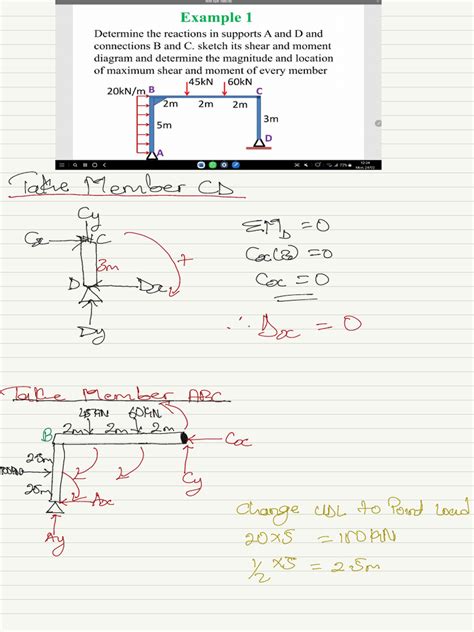 Example 1
Determine the reactions in supports A and D and
connections B and C. sketch its shear and moment
diagram and determine the magnitude and location
of maximum shear and moment of every member
45kN 60kN
20kN/m B C
2m 2m 2m
5m 3m
A D
Take Member CD
Cy
Cx C
3m +
D Dx
Dy
ΣM_D = 0
Cx(3) = 0
Cx = 0
∴ Dx = 0
Take Member ABC
45kN 60kN
B 2m 2m 2m
Cx
2.5m
Cy
100kN
2.5m
Ax
Ay
Change UDL to Point Load
20×5 = 100kN
1/2 ×5 = 2.5m